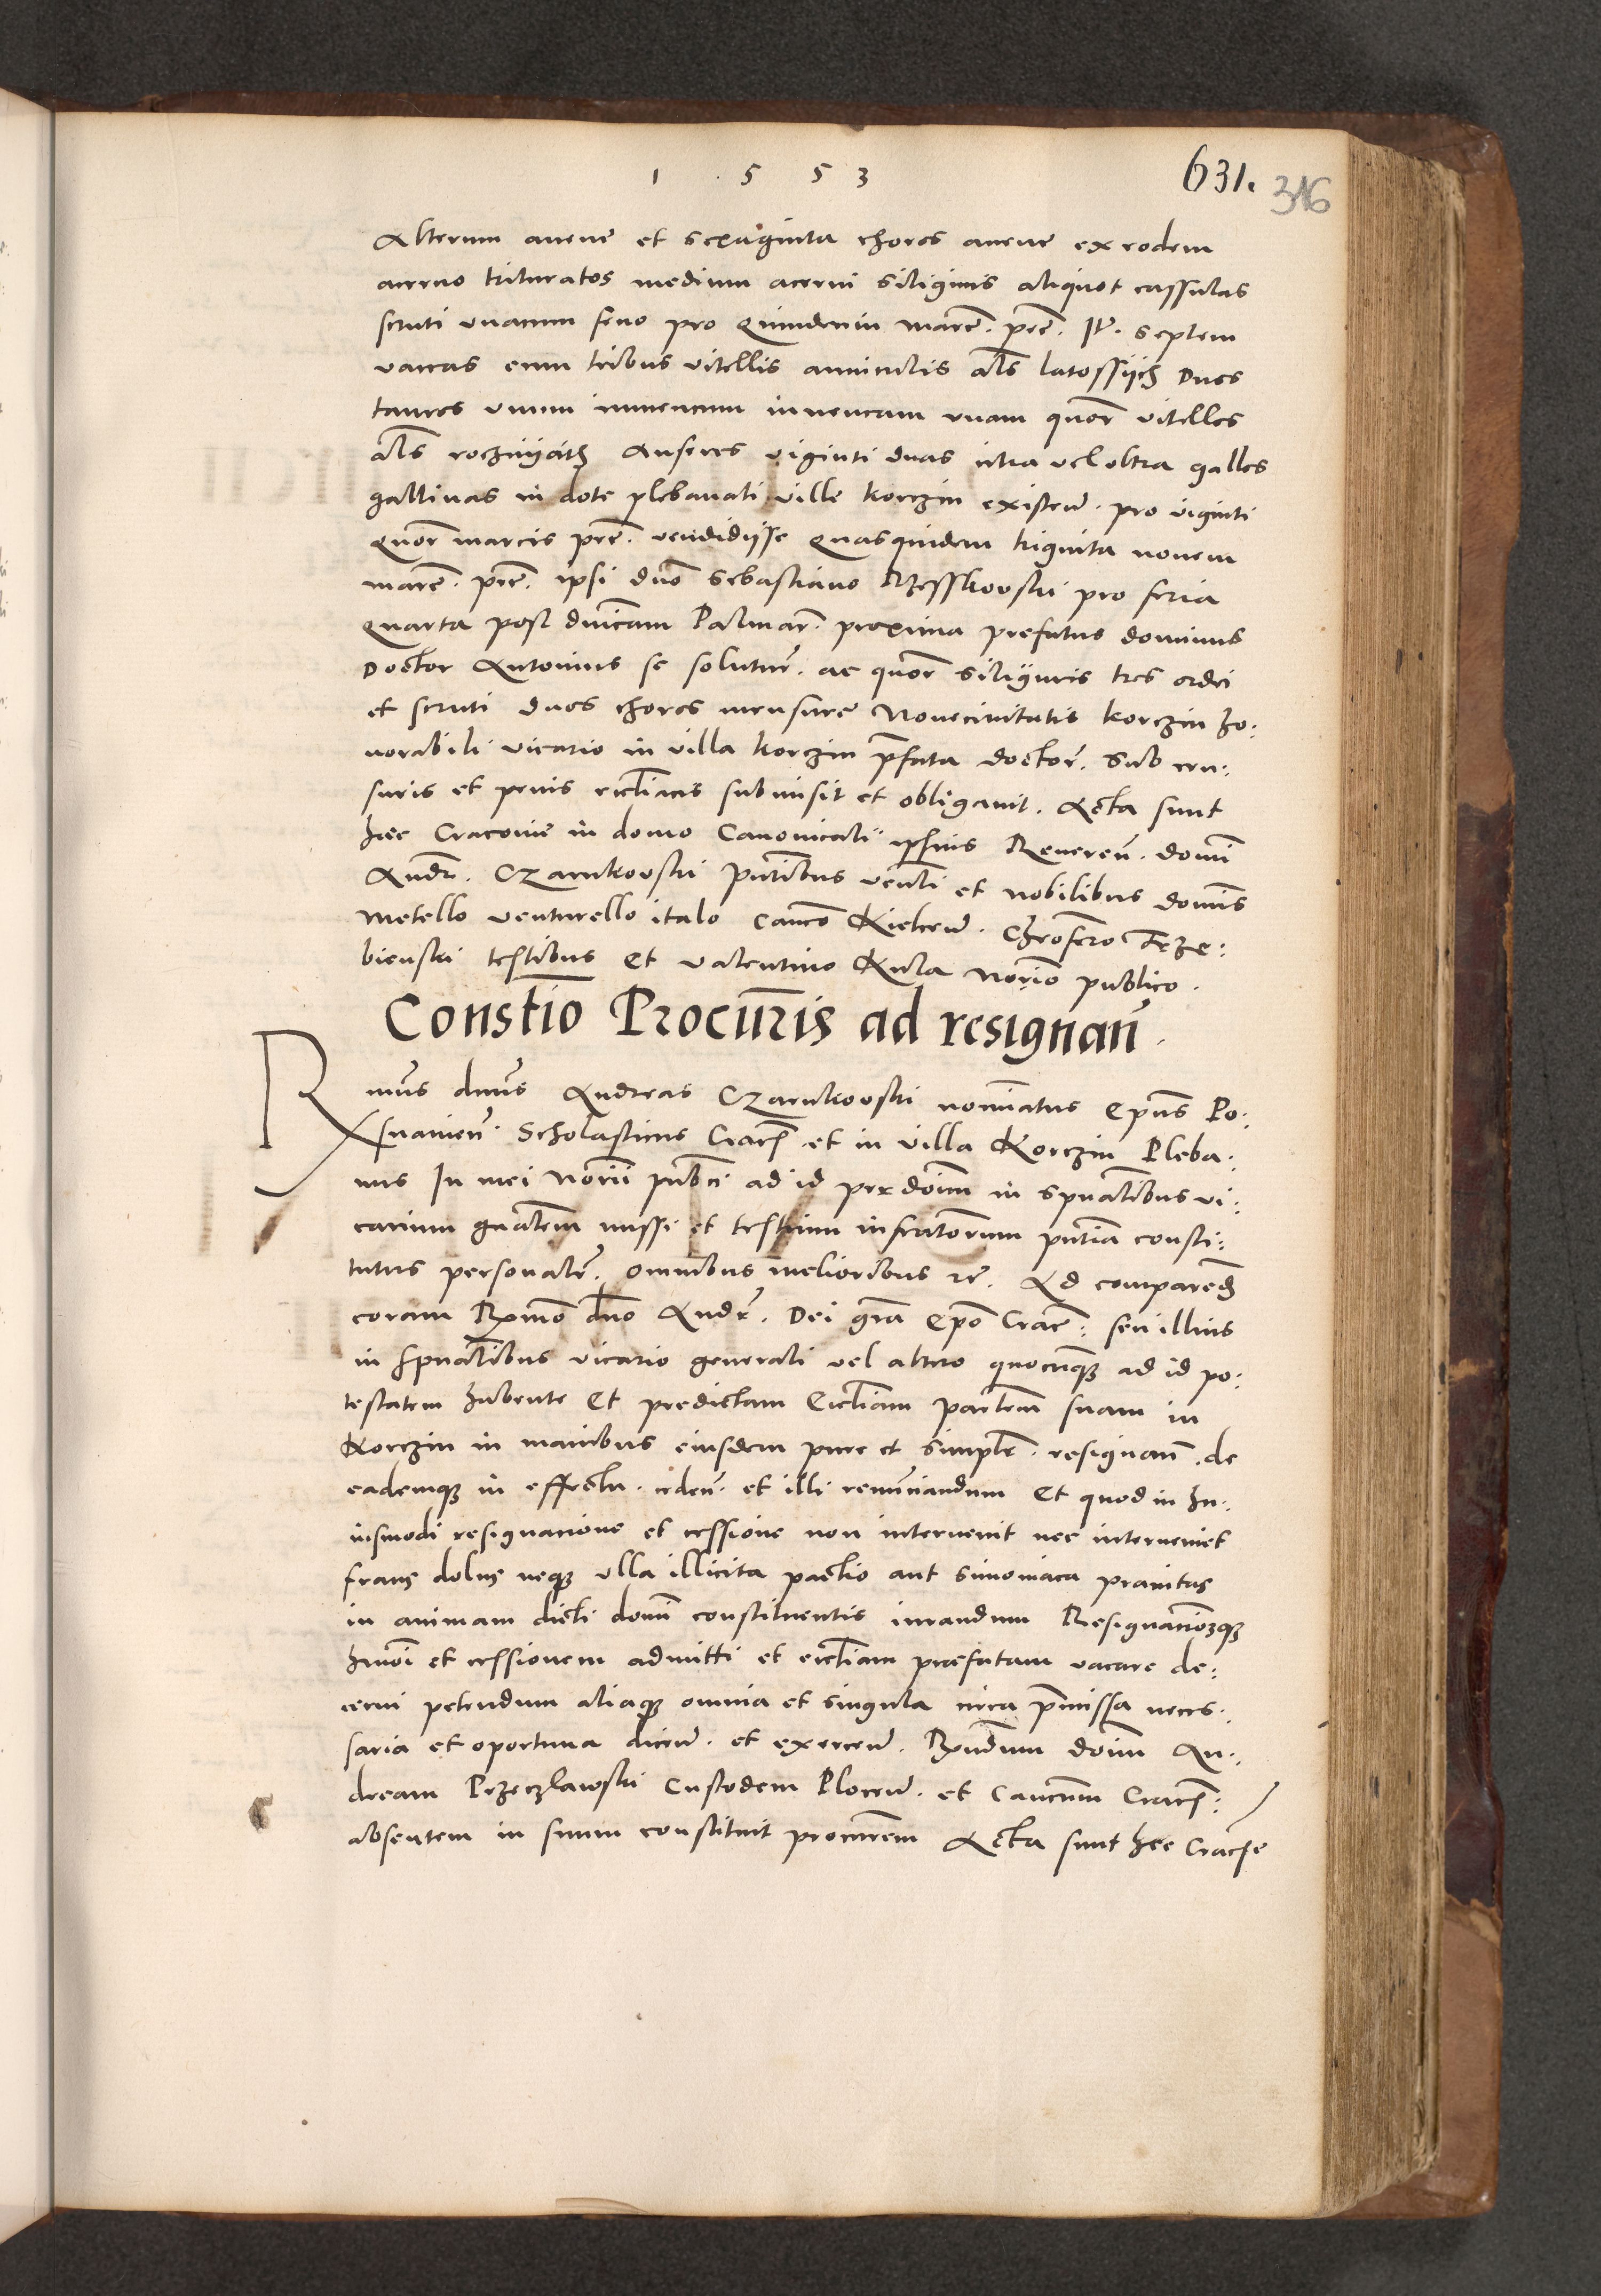 1 5 5 3
631.
316
Alterum avene et sexaginta choros avene ex eodem
acervo trituratos medium acervi siliginis aliquot cassulas
scruti unacum feno pro quindecim marcẽ. pecẽ. Itẽ. septem
vaccas cum tribus vitellis anniculis als latossijch duos
tauros unum iuvencum iuvencam unam quor̃ vitellos
als roczniiath Anseres viginti duas citra vel ultra gallos
gallinas in dote plebanali ville Korczin existeñ. pro viginti
quor̃ marcis pecẽ. vendidisse Quasquidem triginta novem
marcẽ. pecẽ. ipsi dño Sebastiano pro feria
quarta post dñicam Palmar̃. proxima prefatus dominus
Doctor Antonius se soluturẽ. ac quor̃ siliginis tres ordei
et scruti duos choros mensure Novecivitatis Korczin ho:
norabili vicario in villa Korczin p̃fata doctor̃. Sub cen:
suris et penis ecclĩacis submisit et obligavit. Acta sunt
hec Cracovie in domo Canonicali ipsius Reverenẽ. domĩ
Andr̃. Czarnkovski p̃ntibus veñli et nobilibus domĩs
Metello venturello italo Canco Kielceñ. Chrõfero Trze:
bienski testibus Et Valentino Kula Norĩo publico.
Constĩo Procur̃is ad resignañ.
Rmũs dnũs Andreas Czarnkovski nomĩatus Epũs Po:
snanieñ. Scholasticus Cracẽ. et in villa Korczin Pleba:
nus In mei Norĩi pubci ad id per doĩm in spũalibus vi:
carium gñalem missi et testium infrãtorum p̃ntia consti:
tutus personalẽ. omnibus melioribus rẽ. Ad comparenẽ
coram Rmõ dño Andr̃. Dei gr̃a Ep̃o Cracẽ: seu illius
in spũalibus vicario generali vel altero quocunq̃ ad id po:
testatem habente Et predictam Ecclĩam paroc̃lem suam in
Korczin in manibus eiusdem pure et simplẽ. resignanẽ. de
eademq̃ in effectu. cedenẽ. et illi renunciandum Et quod in hu:
iusmodi resignacione et cessione non intervenit nec interveniet
fraus dolus neq̃ ulla illicita pactio aut simoniaca pravitas
in animam dicti domĩ constituentis iurandum Resignacionẽq̃
hmõi et cessionem admitti et ecclĩam præfatam vacare de:
cerni petendum aliaq̃ omnia et singula circa p̃missa neces:
saria et oportuna diceñ. et exerceñ. Rvndum doĩm An:
dream Przeczlawski Custodem Ploceñ. et Cancũm Cracẽ:
absentem in suum constituit procur̃em Acta sunt hec Cracẽ